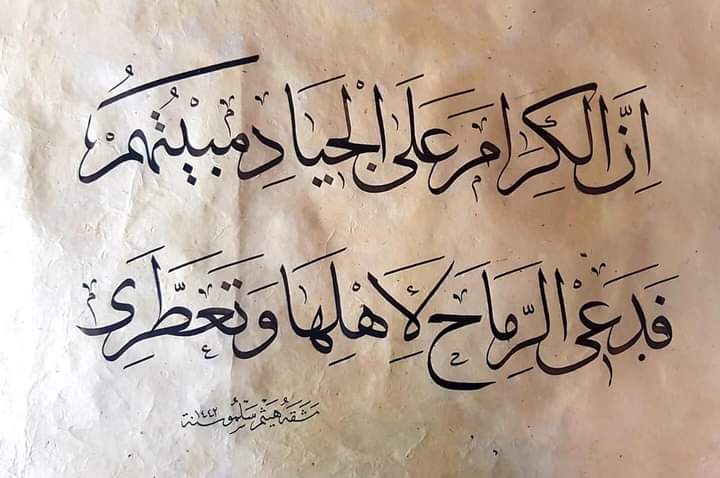 اِنَّ الكِرَامَ عَلَى الْجِيَادِ مَبِيْتُهُمْ
فَدَعِي الرِّمَاحَ لِأَهْلِهَا وَتَعَطَّرِي
مَشَقَهُ هَيْثَم سَلْمُو سنة ١٤٤٢